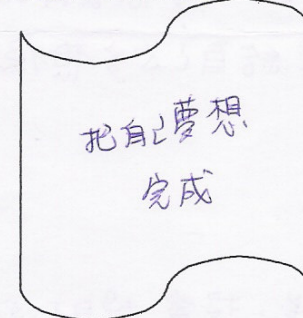 把自己夢想
完成